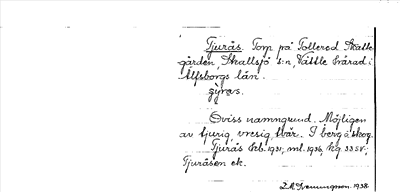 Tjurås. Torp på Tollered Skatte
gården, Skallsjö s:n, Vättle härad i
Älfsborgs län.
Oviss namngrund. Möjligen
av tjurig, vresig, tvär. I berg o. skog.
Tjurås Kb. 1931, ml. 1936, hfg 33 SV;
Tjuråsen ek.
1938.